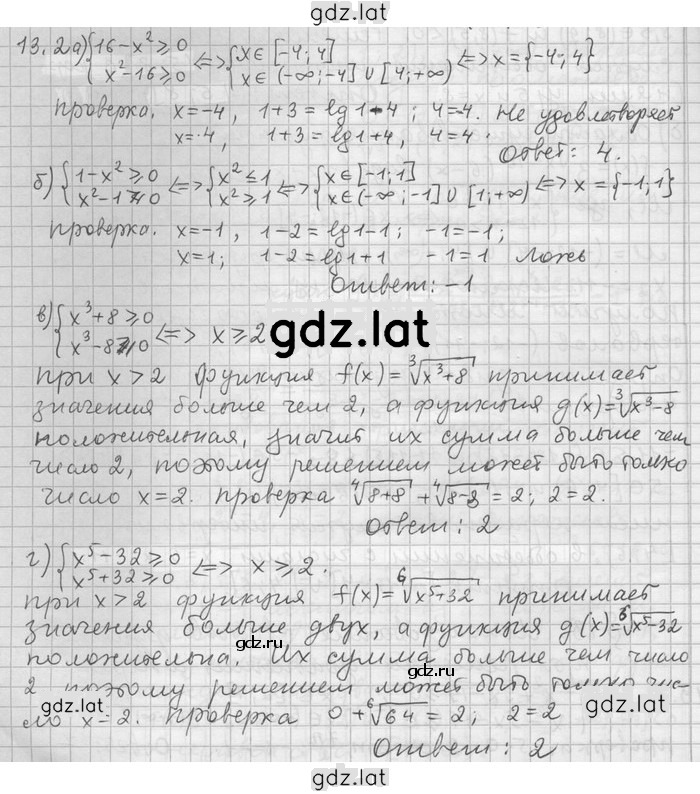 gdz.lat
13.2 а) {16-x²⩾0 x²-16⩾0 <=> {x∈[-4;4] x∈(-∞;-4]∪[4;+∞) <=> x={-4;4}
проверка. x=-4, 1+3=lg1-4; 4=-4. Не удовлетворяет
x=4, 1+3=lg1+4, 4=4.
Ответ: 4.
б) {1-x²⩾0 x²-1⩾0 <=> {x²⩽1 x²⩾1 <=> {x∈[-1;1] x∈(-∞;-1]∪[1;+∞) <=> x={-1;1}
проверка. x=-1, 1-2=lg1-1; -1=-1;
x=1; 1-2=lg1+1 -1=1 ложь
Ответ: -1
в) {x³+8⩾0 x³-8⩾0 <=> x⩾2
gdz.lat
при x>2 функция f(x)=∜(x³+8) принимает
значения больше чем 2, а функция g(x)=∜(x³-8)
положительная, значит их сумма больше чем
число 2, поэтому решением может быть только
число x=2. проверка ∜(8+8)+∜(8-8)=2; 2=2.
Ответ: 2
г) {x⁵-32⩾0 x⁵+32⩾0 <=> x⩾2.
при x>2 функция f(x)=⁶√(x⁵+32) принимает
значения больше двух, а функция g(x)=⁶√(x⁵-32)
gdz.lat
положительна. Их сумма больше чем число
2 поэтому решением может быть только чис-
ло x=2. проверка 0+⁶√64=2; 2=2
gdz.lat
gdz.lat
Ответ: 2
gdz.lat